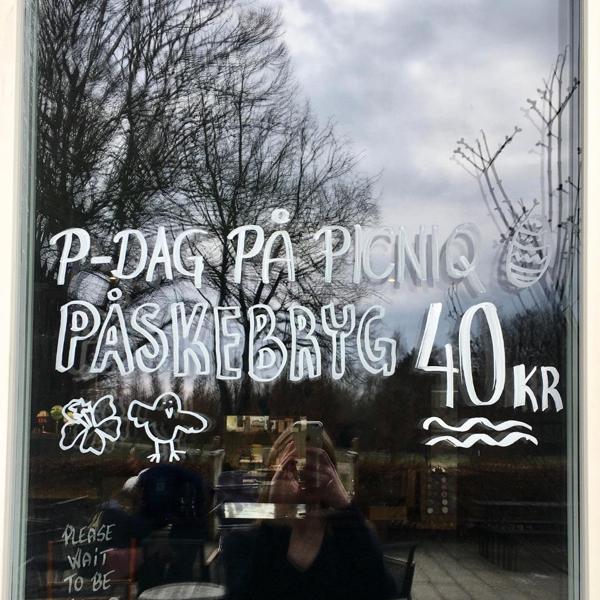 P-DAG PÅ PICNIQ
PÅSKEBRYG 40 KR
PLEASE
WAIT
TO BE